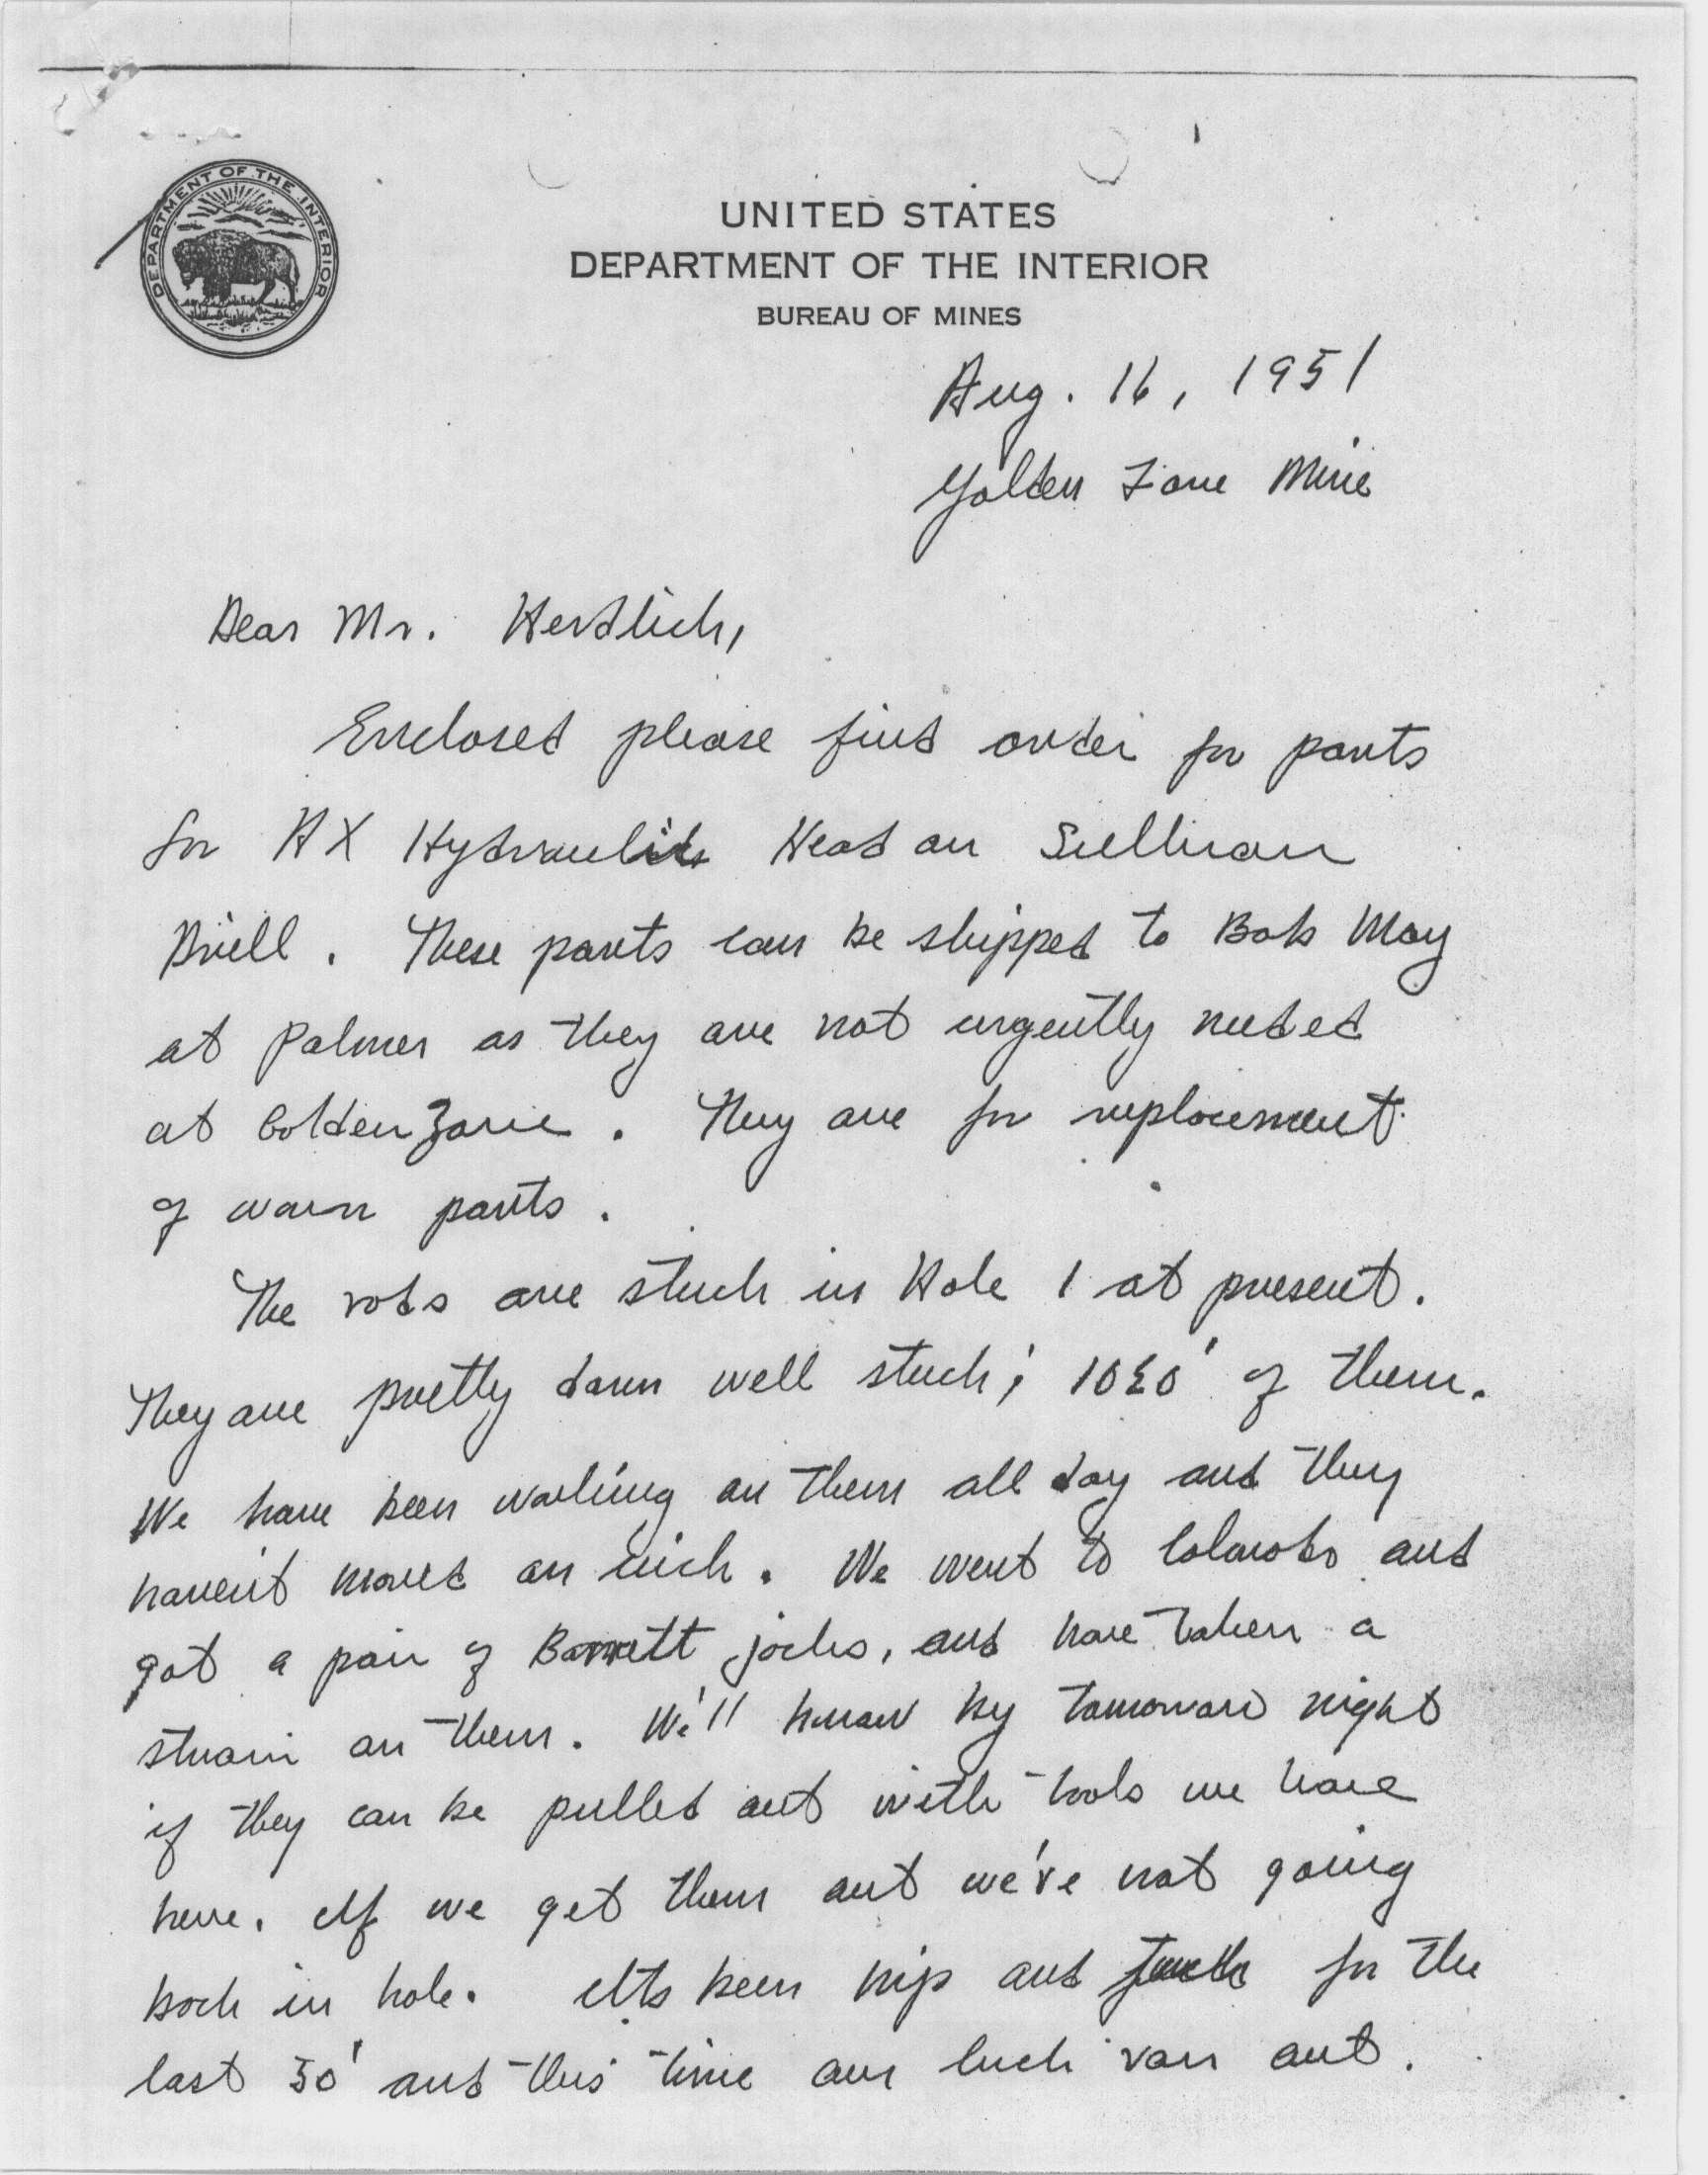 DEPARTMENT OF THE INTERIOR
UNITED STATES
DEPARTMENT OF THE INTERIOR
BUREAU OF MINES
Aug. 16, 1951
Golden Zone Mine
Dear Mr. Herdlick,
Enclosed please find order for parts
for HX Hydraulic Head on Sullivan
Drill. These parts can be shipped to Bob May
at Palmer as they are not urgently needed
at Golden Zone. They are for replacement
of worn parts.
The rods are stuck in Hole 1 at present.
They are pretty damn well stuck; of them.
We have been working on them all day and they
haven't moved an inch. We went to Colorado and
got a pair of Barrett jacks, and have taken a
strain on them. We'll know by tomorrow night
if they can be pulled out with tools we have
here. If we get them out we're not going
back in hole. Its been nip and tuck for the
last 50' and this time our luck ran out.